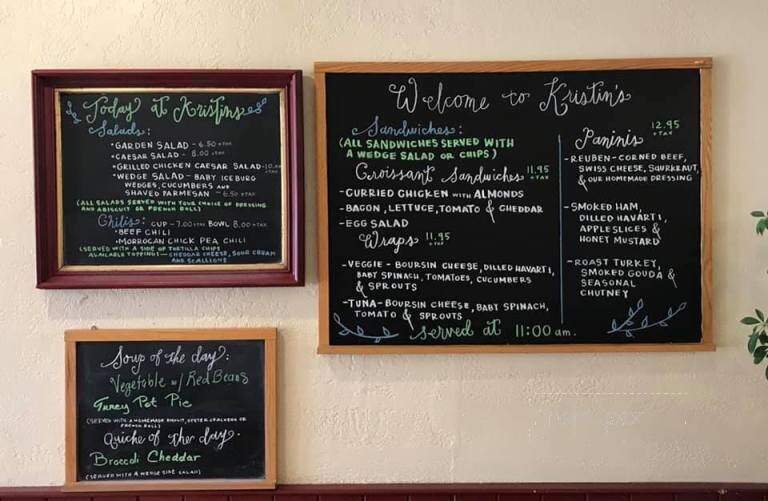 Today at Kristins
Salads:
• GARDEN SALAD - 6.50 +TAX
• CAESAR SALAD - 8.00 +TAX
• GRILLED CHICKEN CAESAR SALAD - 10.00 +TAX
• WEDGE SALAD - BABY ICEBURG
WEDGES, CUCUMBERS AND
SHAVED PARMESAN - 6.50 +TAX
(ALL SALADS SERVED WITH YOUR CHOICE OF DRESSING
AND A BISCUIT OR FRENCH ROLL)
Chilis: CUP - 7.00 +TAX BOWL 8.00 +TAX
• BEEF CHILI
• MORROGAN CHICK PEA CHILI
(SERVED WITH A SIDE OF TORTILLA CHIPS
AVAILABLE TOPPINGS - CHEDDAR CHEESE, SOUR CREAM
AND SCALLIONS
Welcome to Kristin's
Sandwiches:
(ALL SANDWICHES SERVED WITH
A WEDGE SALAD OR CHIPS)
Croissant Sandwiches 11.95 +TAX
- CURRIED CHICKEN WITH ALMONDS
- BACON, LETTUCE, TOMATO & CHEDDAR
- EGG SALAD
Wraps 11.95 +TAX
- VEGGIE - BOURSIN CHEESE, DILLED HAVARTI,
BABY SPINACH, TOMATOES, CUCUMBERS
& SPROUTS
- TUNA - BOURSIN CHEESE, BABY SPINACH,
TOMATO & SPROUTS
served at 11:00 am.
Paninis 12.95 +TAX
- REUBEN - CORNED BEEF,
SWISS CHEESE, SQURKRAUT,
& OUR HOMEMADE DRESSING
- SMOKED HAM,
DILLED HAVARTI,
APPLESLICES &
HONEY MUSTARD
- ROAST TURKEY,
SMOKED GOUDA &
SEASONAL
CHUTNEY
Soup of the day:
Vegetable w/ Red Beans
Turkey Pot Pie
(SERVED WITH A HOMEMADE BISCUIT, OYSTER CRACKERS OR
FRENCH ROLL)
Quiche of the day.
Broccoli Cheddar
(SERVED WITH A WEDGE SIDE SALAD)